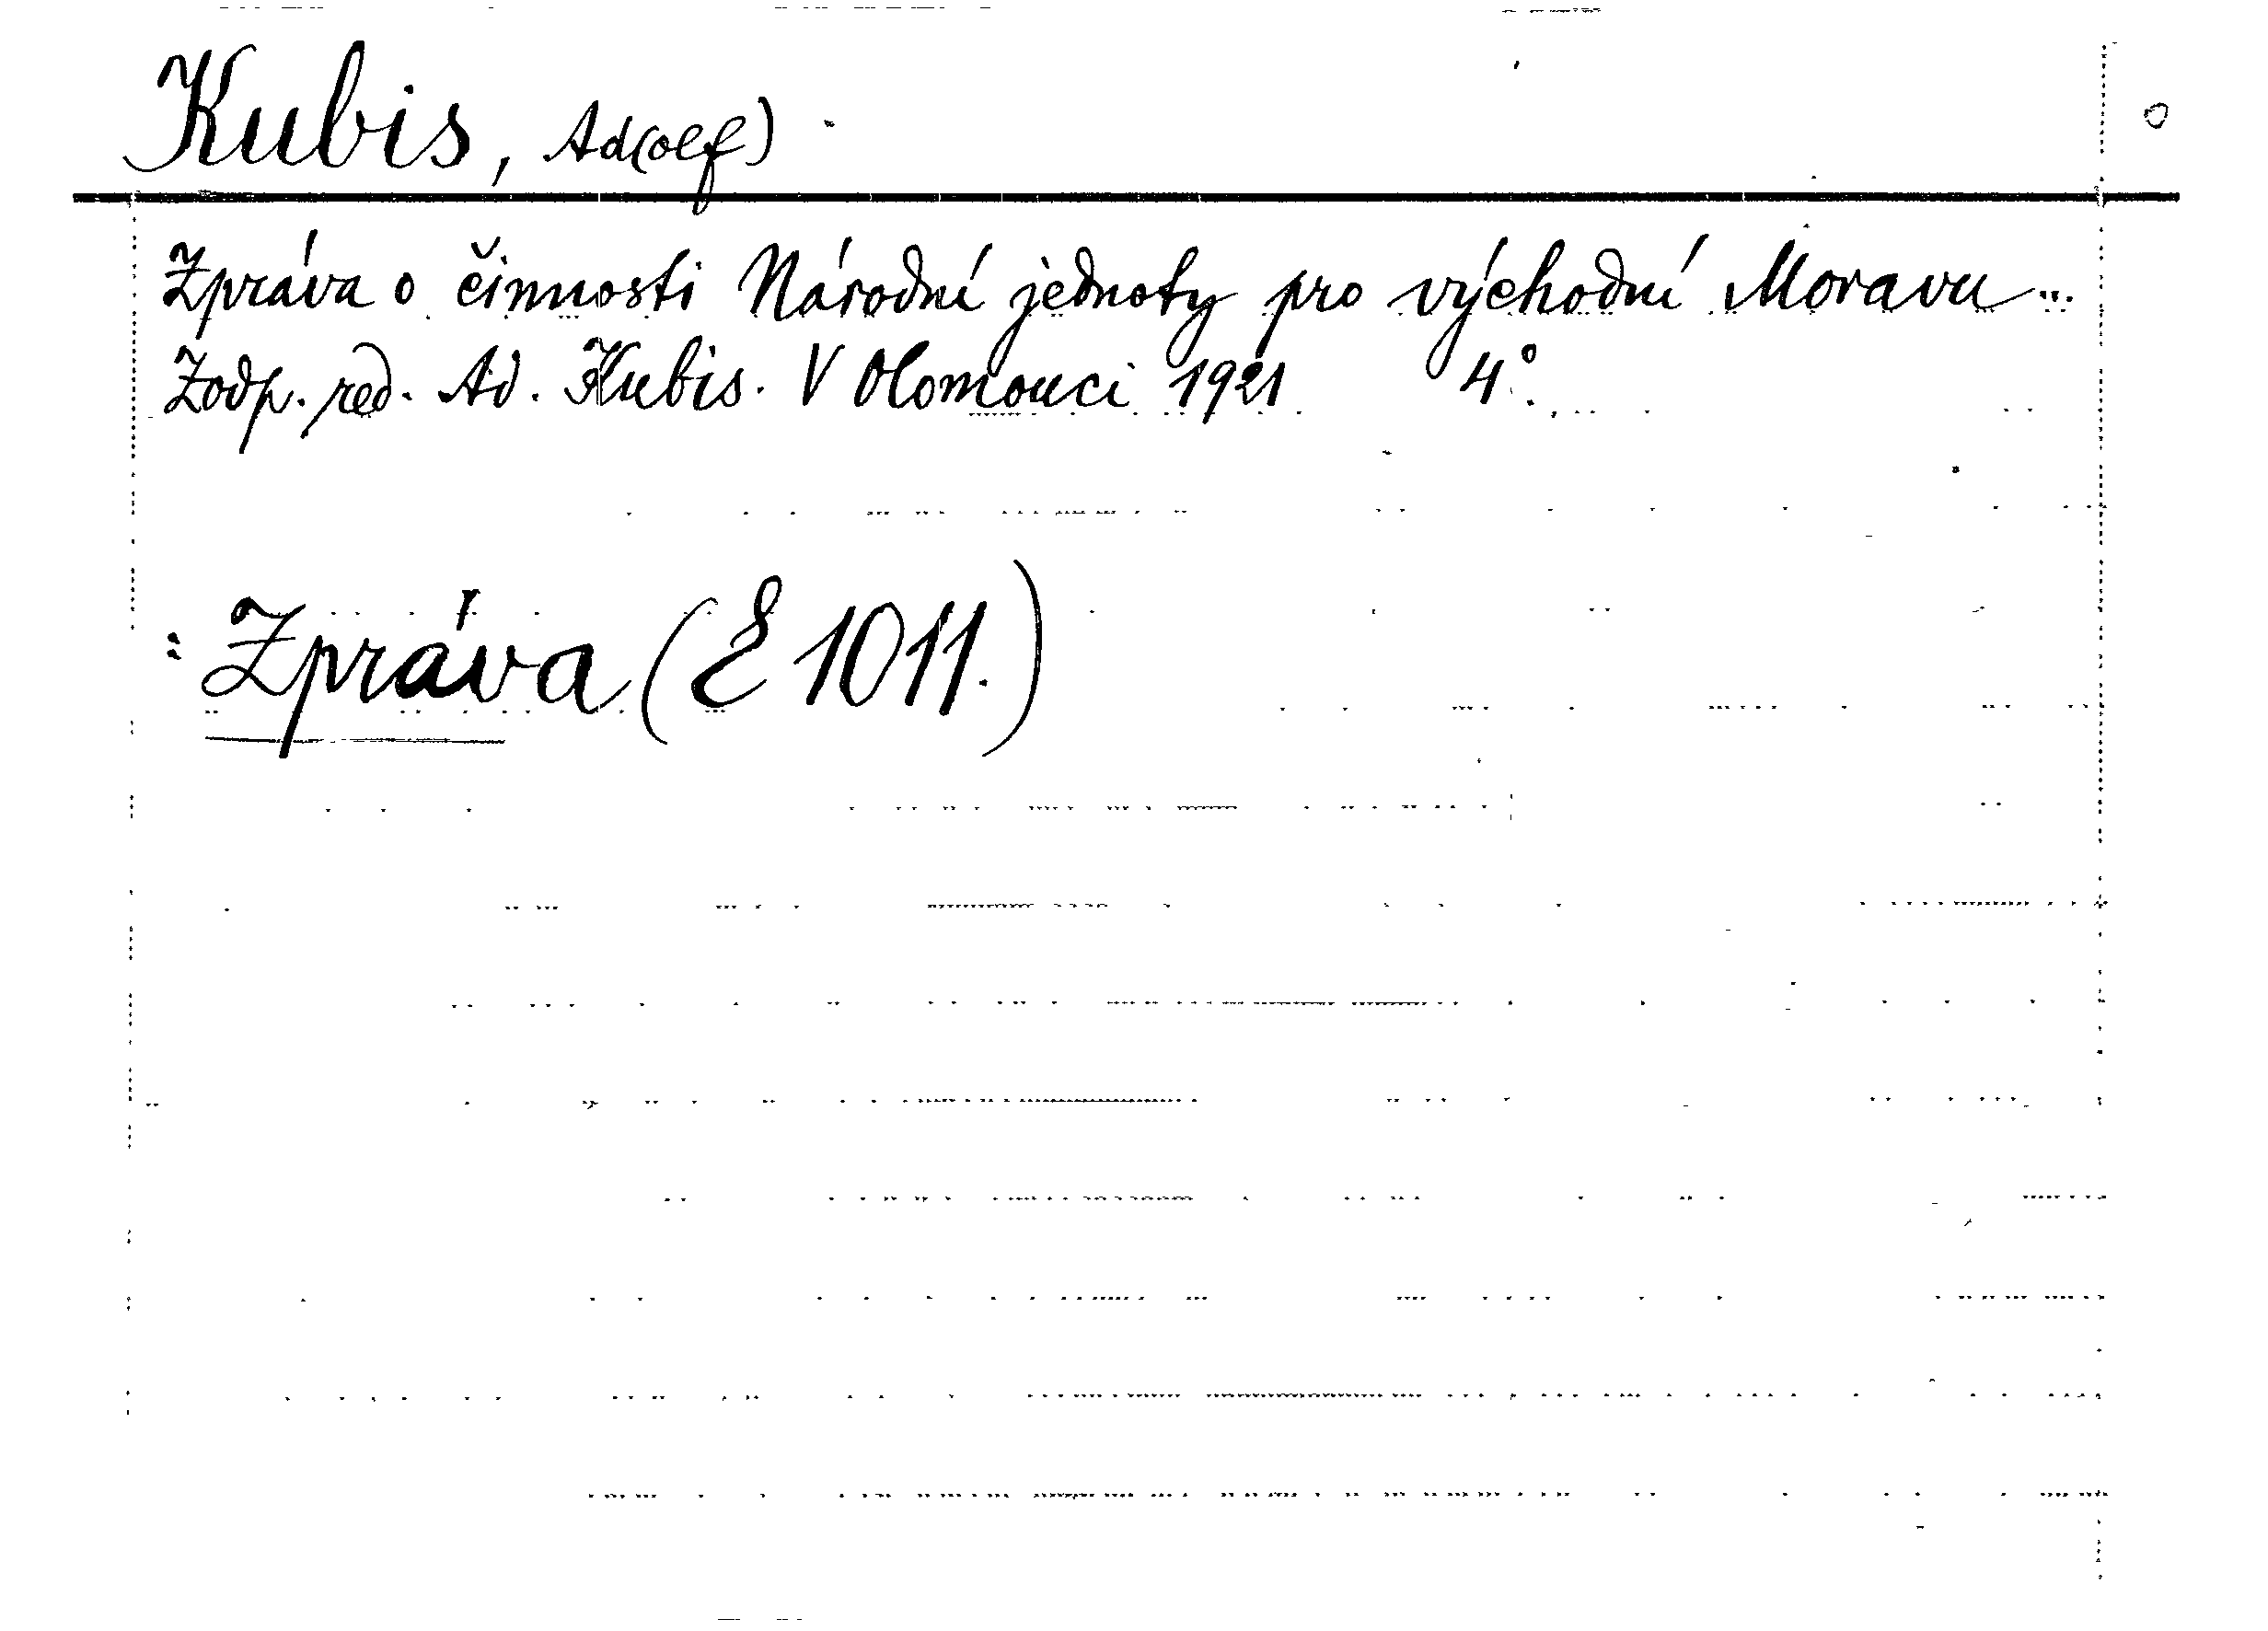 Kubis, Ad(olf)
Zpráva o činnosti Národní jednoty pro východní Moravu...
Zodp. red. Ad. Kubis. V Olomouci 1921 4°.
: Zpráva (E 1011.)